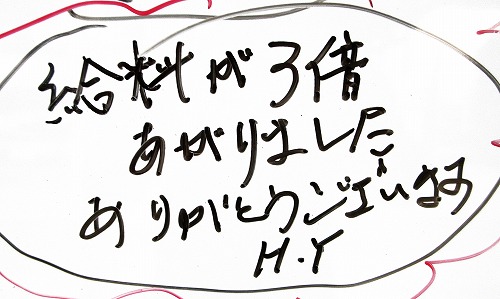 給料が3倍
あがりました
ありがとうございます
H.Y